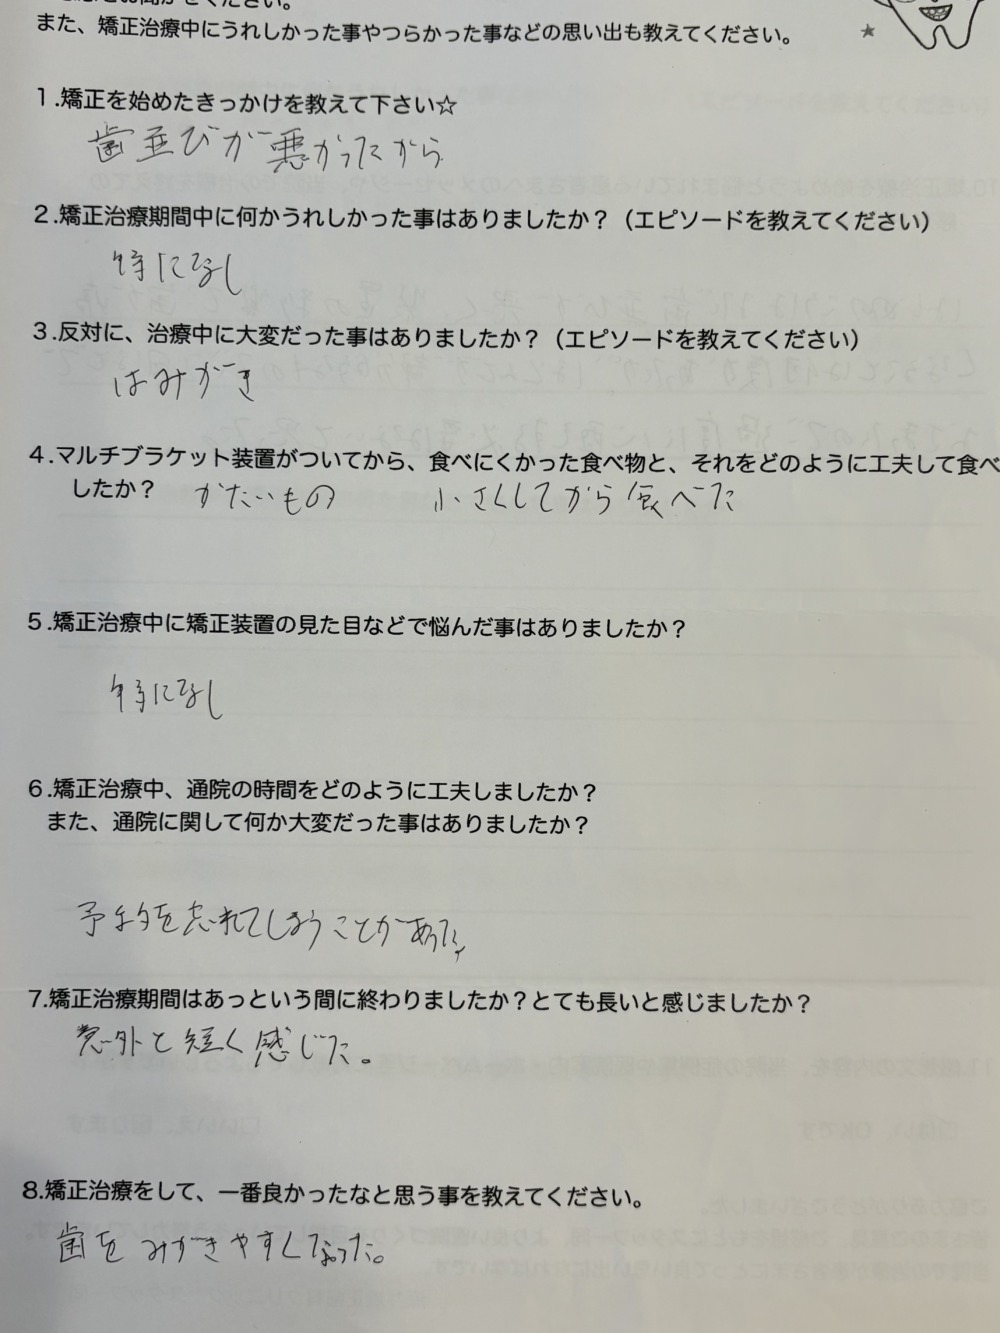 また、矯正治療中にうれしかった事やつらかった事などの思い出も教えてください。
1.矯正を始めたきっかけを教えて下さい☆
歯並びが悪かったから
2.矯正治療期間中に何かうれしかった事はありましたか？（エピソードを教えてください）
特になし
3.反対に、治療中に大変だった事はありましたか？（エピソードを教えてください）
はみがき
4.マルチブラケット装置がついてから、食べにくかった食べ物と、それをどのように工夫して食べ
したか？ かたいもの 小さくしてから食べた
5.矯正治療中に矯正装置の見た目などで悩んだ事はありましたか？
特になし
6.矯正治療中、通院の時間をどのように工夫しましたか？
また、通院に関して何か大変だった事はありましたか？
予約を忘れてしまうことがあった。
7.矯正治療期間はあっという間に終わりましたか？とても長いと感じましたか？
意外と短く感じた。
8.矯正治療をして、一番良かったなと思う事を教えてください。
歯をみがきやすくなった。